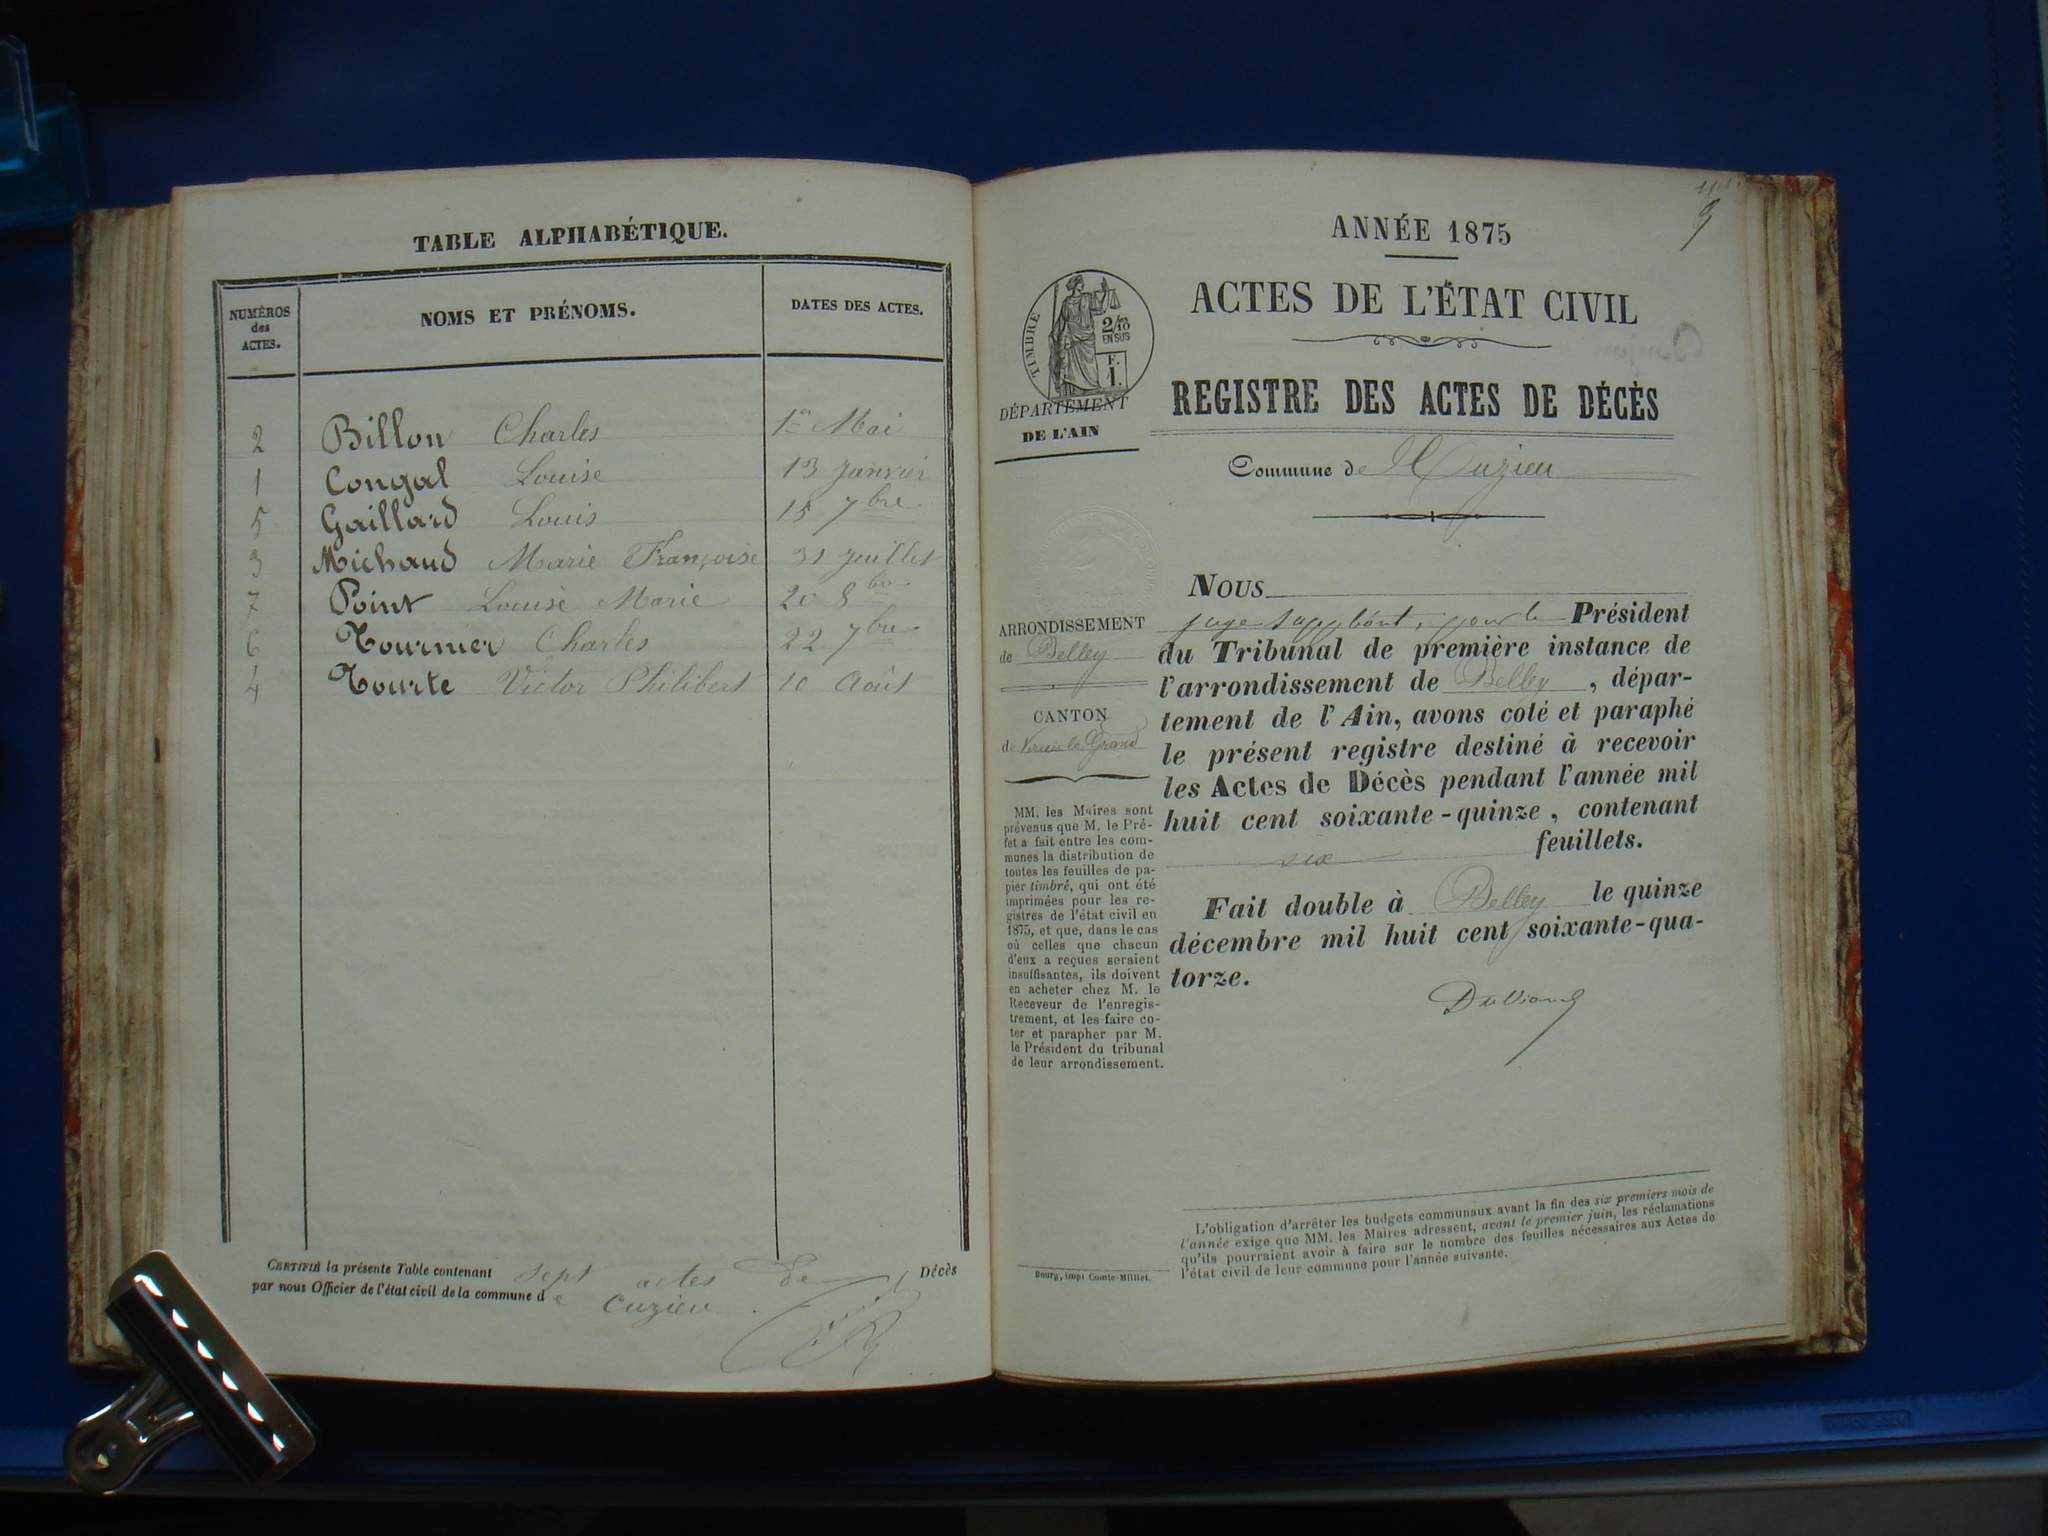 TABLE ALPHABÉTIQUE.
NUMÉROS des ACTES. NOMS ET PRÉNOMS. DATES DES ACTES.
2 Billon Charles 1er Mai
1 Congal Louise 13 Janvier
5 Gaillard Louis 15 7bre
3 Michaud Marie Françoise 31 Juillet
7 Point Louise Marie 20 8bre
6 Tournier Charles 22 7bre
4 Tourte Victor Philibert 10 Août
CERTIFIÉ la présente Table contenant sept actes de Décès
par nous Officier de l'état civil de la commune de Cuzieu
9
ANNÉE 1875
ACTES DE L'ÉTAT CIVIL
TIMBRE
2/10
EN SUS
F.
1.
DÉPARTEMENT
DE L'AIN
REGISTRE DES ACTES DE DÉCÈS
Commune de Cuzieu
ARRONDISSEMENT
de Belley
CANTON
de Virieu le Grand
MM. les Maires sont
prévenus que M. le Pré-
fet a fait entre les com-
munes la distribution de
toutes les feuilles de pa-
pier timbré, qui ont été
imprimées pour les re-
gistres de l'état civil en
1875, et que, dans le cas
où celles que chacun
d'eux a reçues seraient
insuffisantes, ils doivent
en acheter chez M. le
Receveur de l'enregis-
trement, et les faire co-
ter et parapher par M.
le Président du tribunal
de leur arrondissement.
Bourg, imp. Comte-Milliet.
NOUS
juge suppléant, pour le Président
du Tribunal de première instance de
l'arrondissement de Belley, dépar-
tement de l'Ain, avons coté et paraphé
le présent registre destiné à recevoir
les Actes de Décès pendant l'année mil
huit cent soixante-quinze, contenant
six feuillets.
Fait double à Belley le quinze
décembre mil huit cent soixante-qua-
torze.
L'obligation d'arrêter les budgets communaux avant la fin des six premiers mois de
l'année exige que MM. les Maires adressent, avant le premier juin, les réclamations
qu'ils pourraient avoir à faire sur le nombre des feuilles nécessaires aux Actes de
l'état civil de leur commune pour l'année suivante.